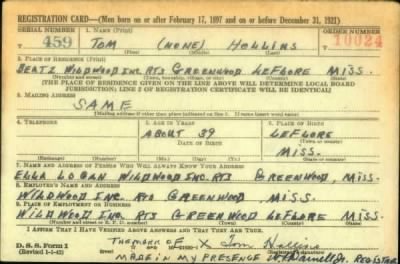 REGISTRATION CARD—(Men born on or after February 17, 1897 and on or before December 31, 1921)
SERIAL NUMBER 1. NAME (Print) ORDER NUMBER
T 459 TOM (NONE) HOLLINS 10024
(First) (Middle) (Last)
2. PLACE OF RESIDENCE (Print)
WILDWOOD INC. RT3 GREENWOOD LEFLORE MISS.
(Number and street) (Town, township, village, or city) (County) (State)
[THE PLACE OF RESIDENCE GIVEN ON THE LINE ABOVE WILL DETERMINE LOCAL BOARD
JURISDICTION; LINE 2 OF REGISTRATION CERTIFICATE WILL BE IDENTICAL]
3. MAILING ADDRESS
SAME
[Mailing address if other than place indicated on line 2. If same insert word same]
4. TELEPHONE 5. AGE IN YEARS 6. PLACE OF BIRTH
ABOUT 39 LEFLORE
DATE OF BIRTH (Town or county)
MISS.
(Exchange) (Number) (Mo.) (Day) (Yr.) (State or country)
7. NAME AND ADDRESS OF PERSON WHO WILL ALWAYS KNOW YOUR ADDRESS
ELLA LOGAN WILDWOOD INC. RT3 GREENWOOD, MISS.
8. EMPLOYER'S NAME AND ADDRESS
WILDWOOD INC. RT3 GREENWOOD, MISS.
9. PLACE OF EMPLOYMENT OR BUSINESS
WILDWOOD INC. RT3 GREENWOOD LEFLORE MISS.
(Number and street or R. F. D. number) (Town) (County) (State)
I AFFIRM THAT I HAVE VERIFIED ABOVE ANSWERS AND THAT THEY ARE TRUE.
D. S. S. Form 1 THE MARK OF X Tom Hollins
(Revised 1-1-42) MADE IN MY PRESENCE REGISTRAR